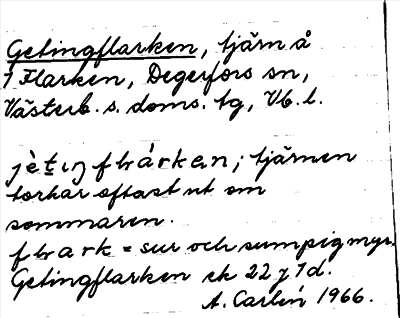 Getingflarken, tjärn å
1 Flarken, Degerfors sn,
Västerb. s. doms. tg, Vb. l.
jètiŋflárkɐn; tjärnen
torkar oftast ut om
sommaren.
flark = sur och sumpig myr.
Getingflarken ek 22 j 7 d.
A. Carlén 1966.